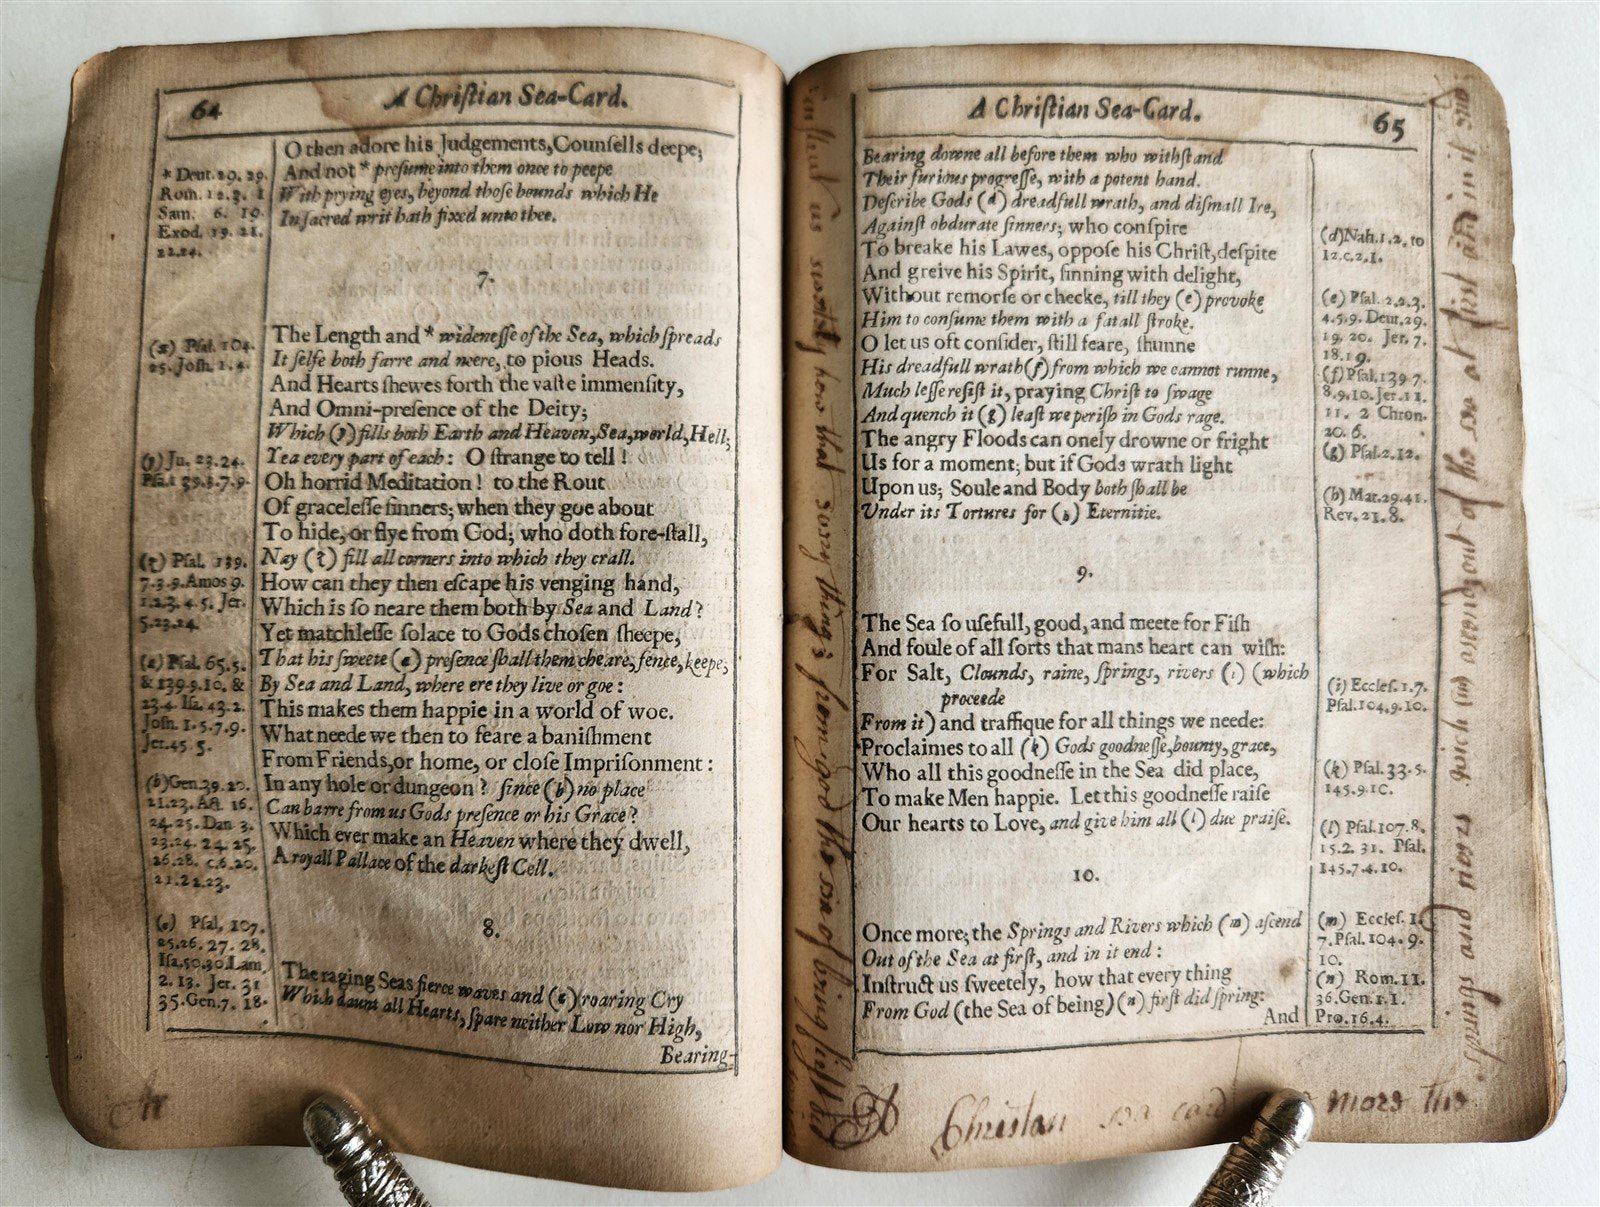 64
A Chriſtian Sea-Card.
O then adore his Judgements, Counſells deepe;
And not * preſume into them once to peepe
With prying eyes, beyond thoſe bounds which He
In ſacred writ hath fixed unto thee.
* Deut. 29. 29.
Rom. 12. 3. 1
Sam. 6. 19.
Exod. 19. 21.
22.24.
7.
The Length and * wideneſſe of the Sea, which ſpreads
It ſelfe both farre and neere, to pious Heads.
And Hearts ſhewes forth the vaſte immenſity,
And Omni-preſence of the Deity;
Which (y) fills both Earth and Heaven, Sea, world, Hell;
Yea every part of each: O ſtrange to tell!
Oh horrid Meditation! to the Rout
Of graceleſſe ſinners; when they goe about
To hide, or flye from God; who doth fore-ſtall,
Nay (z) fill all corners into which they crall.
How can they then eſcape his venging hand,
Which is ſo neare them both by Sea and Land?
Yet matchleſſe ſolace to Gods choſen ſheepe,
That his ſweete (a) preſence ſhall them cheare, fence, keepe,
By Sea and Land, where ere they live or goe:
This makes them happie in a world of woe.
What neede we then to feare a baniſhment
From Friends, or home, or cloſe Impriſonment:
In any hole or dungeon? ſince (b) no place
Can barre from us Gods preſence or his Grace?
Which ever make an Heaven where they dwell,
A royall Pallace of the darkeſt Cell.
(x) Pſal. 104.
25. Joſh. 1. 4.
(y) Jer. 23.24.
Pſal. 139.3.7.9.
(z) Pſal. 139.
7.3.9. Amos 9.
1.2.3.4.5. Jer.
5.23.24.
(a) Pſal. 65.5.
& 139.9.10. &
23.4. Iſa. 43.2.
Joſh. 1.5.7.9.
Jer. 45. 5.
(b) Gen. 39. 20.
21.23. Act. 16.
24.25. Dan 3.
23.24. 24. 25.
26.28. c.6.20.
21.22.23.
8.
The raging Seas fierce waves and (c) roaring Cry
Which daunt all Hearts, ſpare neither Low nor High,
Bearing
(c) Pſal. 107.
25.26. 27. 28.
Iſa.50.30. Lam.
2. 13. Jer. 31
35. Gen. 7. 18.
A Chriſtian Sea-Card.
65
Bearing downe all before them who withſtand
Their furious progreſſe, with a potent hand.
Deſcribe Gods (d) dreadfull wrath, and diſmall Ire,
Againſt obdurate ſinners; who conſpire
To breake his Lawes, oppoſe his Chriſt, deſpite
And greive his Spirit, ſinning with delight,
Without remorſe or checke, till they (e) provoke
Him to conſume them with a fatall ſtroke.
O let us oft conſider, ſtill feare, ſhunne
His dreadfull wrath (f) from which we cannot runne,
Much leſſe reſiſt it, praying Chriſt to ſwage
And quench it (g) leaſt we periſh in Gods rage.
The angry Floods can onely drowne or fright
Us for a moment; but if Gods wrath light
Upon us; Soule and Body both ſhall be
Under its Tortures for (h) Eternitie.
(d) Nah. 1. 2. to
12. c. 2. 1.
(e) Pſal. 2.2.3.
4.5.9. Deut. 29.
19. 20. Jer. 7.
18.19.
(f) Pſal. 139 7.
8.9.10. Jer. 11.
11. 2 Chron.
20. 6.
(g) Pſal. 2.12.
(h) Mat. 29.41.
Rev. 21. 8.
9.
The Sea ſo uſefull, good, and meete for Fiſh
And foule of all ſorts that mans heart can wiſh:
For Salt, Clounds, raine, ſprings, rivers (i) (which
proceede
From it) and traffique for all things we neede:
Proclaimes to all (k) Gods goodneſſe, bounty, grace,
Who all this goodneſſe in the Sea did place,
To make Men happie. Let this goodneſſe raiſe
Our hearts to Love, and give him all (l) due praiſe.
(i) Eccleſ. 1.7.
Pſal. 104. 9. 10.
(k) Pſal. 33. 5.
145.9.10.
(l) Pſal. 107.8.
15. 2. 31. Pſal.
145.7.4.10.
10.
Once more; the Springs and Rivers which (m) aſcend
Out of the Sea at firſt, and in it end:
Inſtruct us ſweetely, how that every thing
From God (the Sea of being) (n) firſt did ſpring:
And
(m) Eccleſ. 1.
7. Pſal. 104. 9.
10.
(n) Rom. 11.
36. Gen. 1. 1.
Pro. 16. 4.
A Christan sea card more the
springs and rivers which (m) out of the sea at first and in it
us sweetly how that every thing from god the sea of being first did